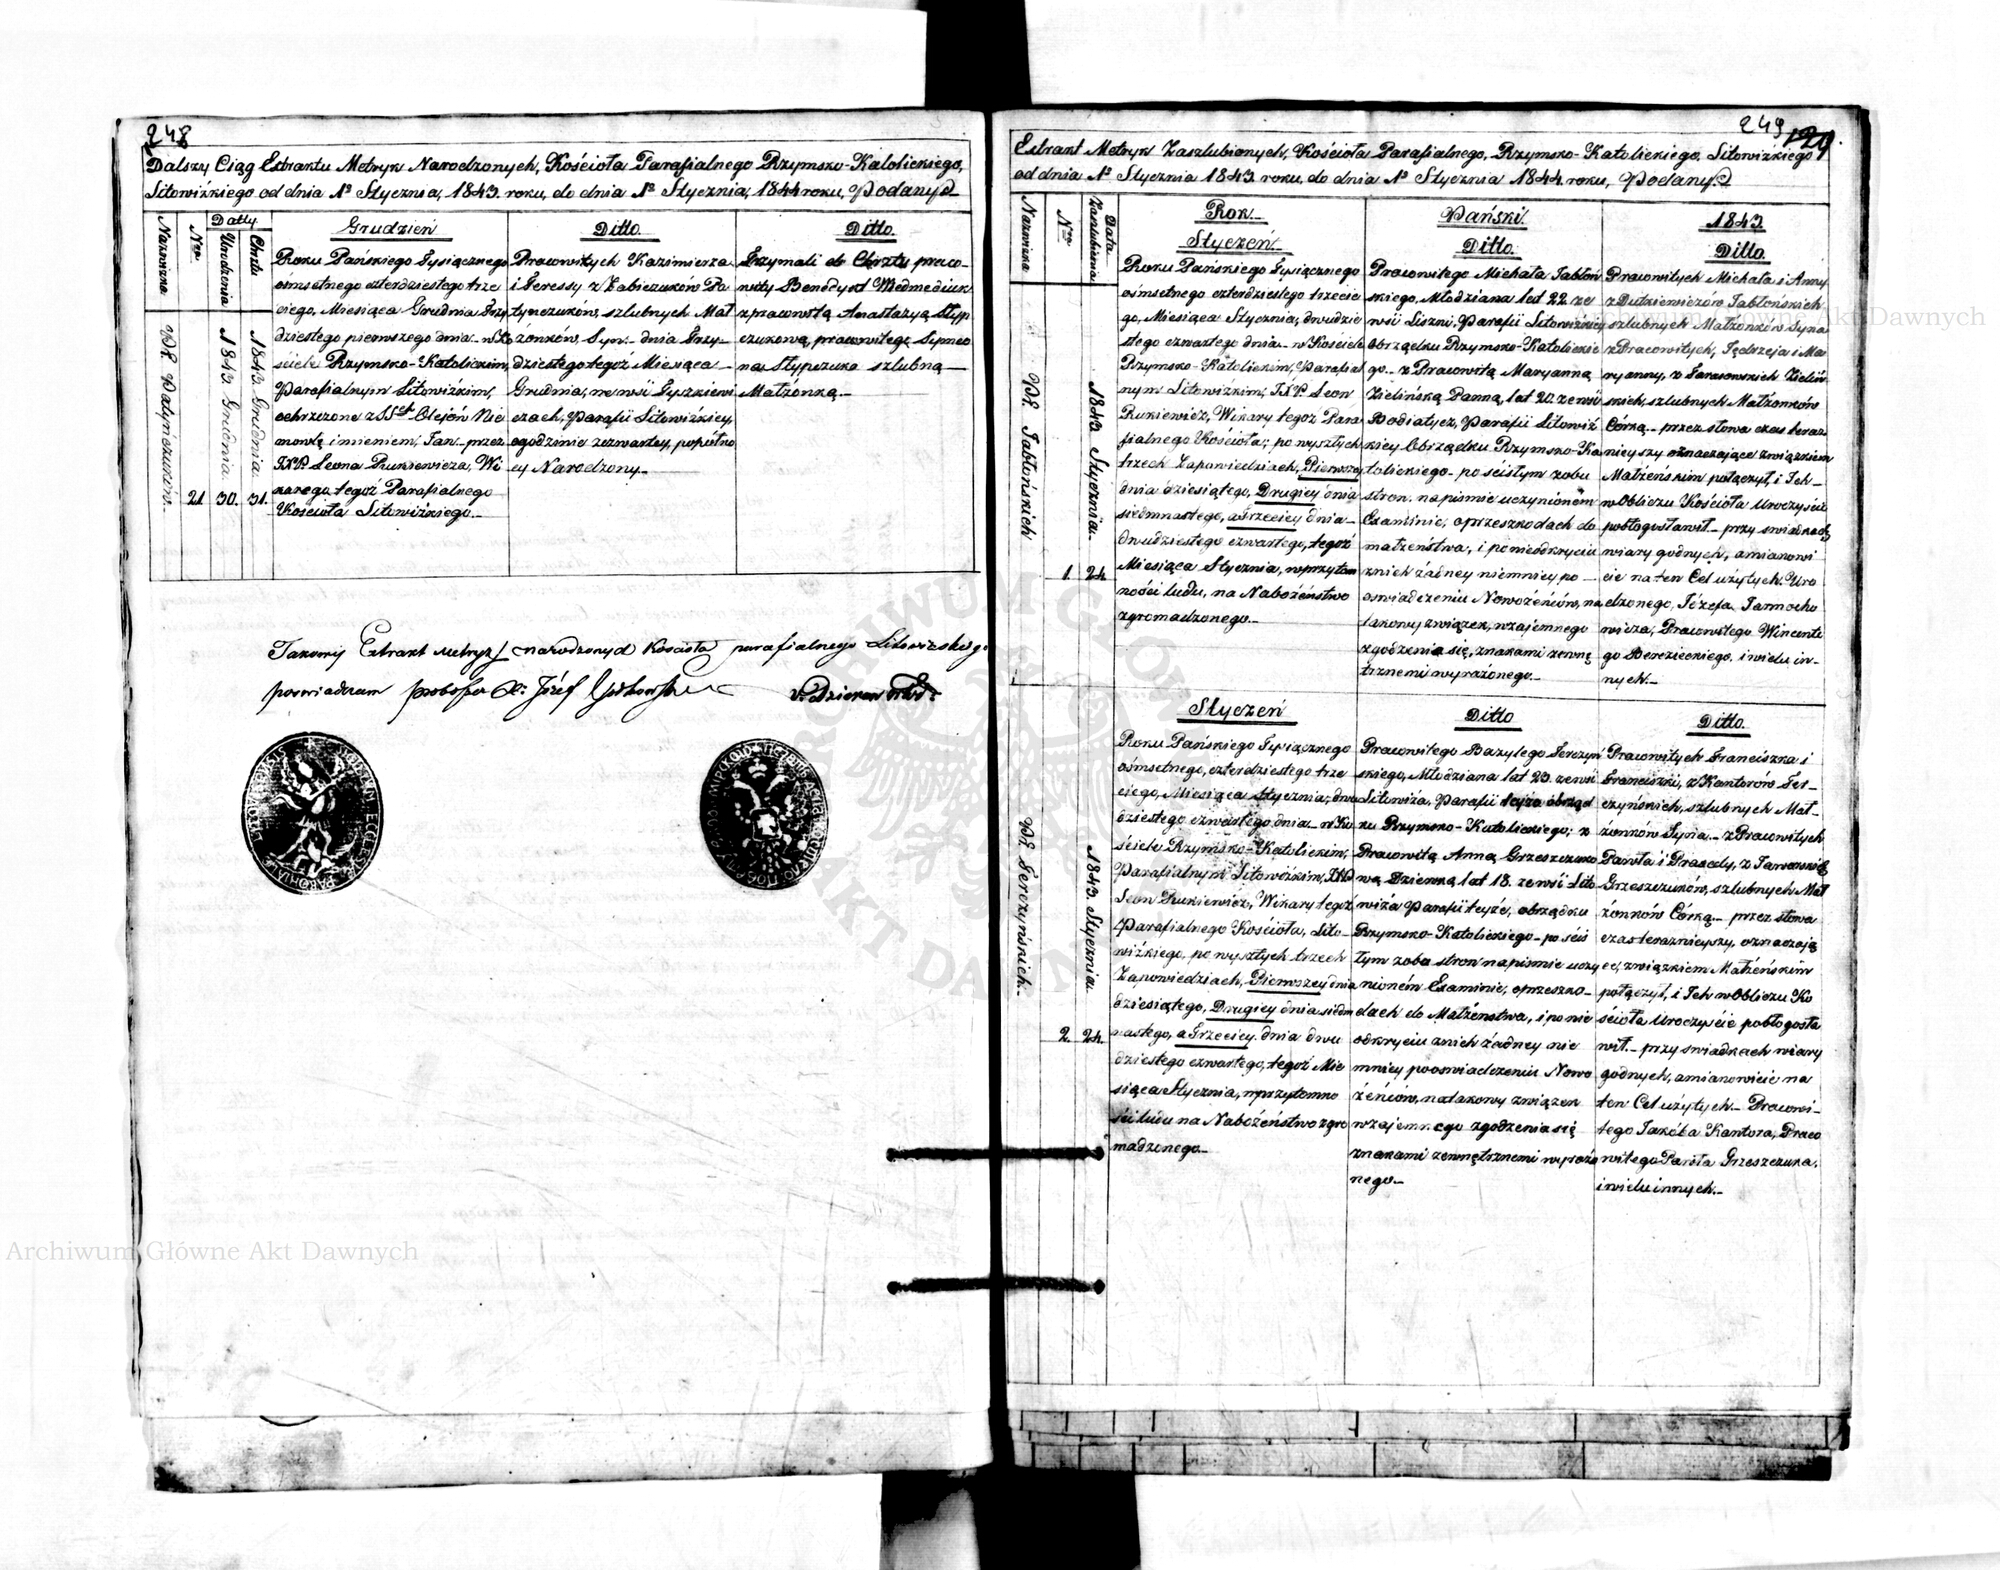 248
Dalszy Ciąg Extraktu Metryk Narodzonych, Kościoła Parafialnego Rzymsko-Katolickiego,
Litowizkiego od dnia 1º Stycznia, 1843. roku, do dnia 1º Stycznia, 1844 roku, Podany
Nazwiska
Nro.
Datty.
Urodzenia
Chrztu
Grudzień
Ditto
Ditto.
1843. Grudnia
1843 Grudnia
21. 30. 31.
Roku Pańskiego Tysiącznego
ośmsetnego czterdziestego trze
ciego, Miesiąca Grudnia, Trzy
dziestego pierwszego dnia w Ko
ściele Rzymsko-Katolickim,
Parafialnym Litowizkim,
ochrzczone z SSt Olejów Nie
mowlę imieniem, Jan przez
JXP. Leona Rukiewicza, Wi
karego tegoż Parafialnego
Kościoła Litowizkiego.
Pracowitych Kazimierza
i Teressy z Babiczuków Pa
tynczuków, szlubnych Mał
żonków, Syn dnia Trzy-
dziestego tegoż Miesiąca
Grudnia, we wsi Łyszkiewi
czach, Parafii Litowizkiey,
o godzinie czwartey, popołno
cy Narodzony.
Trzymali do Chrztu praco-
wity Benedykt Wiedmediuk
z pracowitą Anastazyą Styp
czukową, pracowitego Symeo
na Stypczuka szlubną
Małżonką.
Takowy Extrakt Metryk narodzonych Kościoła parafialnego Litowizkiego
poswiadczam proboszcz X: Józef
249
129.
Extrakt Metryk Zaszlubionych, Kościoła Parafialnego, Rzymsko-Katolickiego, Litowizkiego
od dnia 1º Stycznia 1843. roku, do dnia 1º Stycznia 1844. roku, Podany.
Nazwiska
Nro
Data Zaszlubienia
Rok
Pański
1843.
Styczeń
Ditto.
Ditto.
WP. Jabłońskich
1843 Stycznia.
1. 24
Roku Pańskiego Tysiącznego
ośmsetnego czterdziestego trzecie
go, Miesiąca Stycznia, dwudzie
stego czwartego dnia w Kościele
Rzymsko-Katolickim, Parafial
nym Litowizkim, JXP. Leon
Rukiewicz, Wikary tegoż Para
fialnego Kościoła; po wyszłych
trzech Zapowiedziach, Pierwszey
dnia dziesiątego, Drugiey dnia
siedmnastego, a Trzeciey dnia
dwudziestego czwartego, tegoż
Miesiąca Stycznia, w przytom
ności ludu, na Nabożeństwo
zgromadzonego.
Pracowitego Michała Jabłoń
skiego, Młodziana lat 22 ze
wsi Liszni, Parafii Litowizkiey
Obrządku Rzymsko-Katolickie
go. z Pracowitą Maryanną
Zielińską Panną, lat 20. ze wsi
Bodiatycz, Parafii Litowiz
kiey Obrządku Rzymsko-Ka
tolickiego po ścisłym z obu
stron. na piśmie uczynionem
Examinie; o przeszkodach do
małżeństwa, i po nieodkryciu
z nich żadney niemniey po
oświadczeniu Nowożeńców, na
takowy związek, wzajemnego
zgodzenia się, znakami zewnę
trznemi wyrażonego.
Pracowitych Michała i Anny
z Dutkiewiczów Jabłońskich
szlubnych Małżonków Syna
z Pracowitych, Jędrzeja i Ma
ryanny, z Tarasowskich Zieliń
skich, szlubnych Małżonków
Córką. przez słowa czas teraz
nieyszy oznaczające związkiem
Małżeńskim połączył, i Ich
w Obliczu Kościoła Uroczyście
pobłogosławił. przy świadkach
wiary godnych, a mianowi
cie na ten Cel użytych. Uro
dzonego, Józefa Jarmocho
wicza, Pracowitego Wincente
go Berezieckiego. i wielu in-
nych.
Styczeń
Ditto
Ditto.
WP. Terczyńskich.
1843. Stycznia.
2. 24.
Roku Pańskiego Tysiącznego
ośmsetnego, czterdziestego trze
ciego, Miesiąca Stycznia, dwu
dziestego czwartego dnia w Ko
ściele Rzymsko-Katolickim,
Parafialnym Litowizkim, JXP
Leon Rukiewicz, Wikary tegoż
Parafialnego Kościoła, Lito-
wizkiego, po wyszłych trzech
Zapowiedziach, Pierwszey dnia
dziesiątego, Drugiey dnia siedm
nastego, a Trzeciey dnia dwu
dziestego czwartego, tegoż Mie
siąca Stycznia, w przytomno
ści ludu na Nabożeństwo zgro
madzonego.
Pracowitego Bazylego Terczyń
skiego, Młodziana lat 23. ze wsi
Litowiża, Parafii teyże obrząd
ku Rzymsko-Katolickiego; z
Pracowitą Anną Grzeszczuko
wą Dziewką lat 18. ze wsi Lito
wiża Parafii teyże, obrządku
Rzymsko-Katolickiego po ścis
łym z obu stron na piśmie uczy
nioném Examinie, o przeszko-
dach do Małżeństwa, i po nie
odkryciu z nich żadney nie
mniey po oswiadczeniu Nowo
żeńców, na takowy związek
wzajemnego zgodzenia się
znakami zewnętrznemi wyrażo
nego.
Pracowitych Franciszka i
Franciszki, z Kantorów Ter-
czyńskich, szlubnych Mał-
żonków Syna. z Pracowitych
Pawła i Praxedy, z Jaworskich
Grzeszczuków, szlubnych Mał
żonków Córką. przez słowa
czas teraznieyszy, oznaczają
ce, związkiem Małżeńskim
połączył, i Ich w Obliczu Ko
ścioła Uroczyście pobłogosła
wił. przy swiadkach wiary
godnych, a mianowicie na
ten Cel użytych. Pracowi-
tego Jakóba Kantora, Praco
witego Pawła Grzeszczuka.
i wielu innych.
Archiwum Główne Akt Dawnych
Archiwum Główne Akt Dawnych